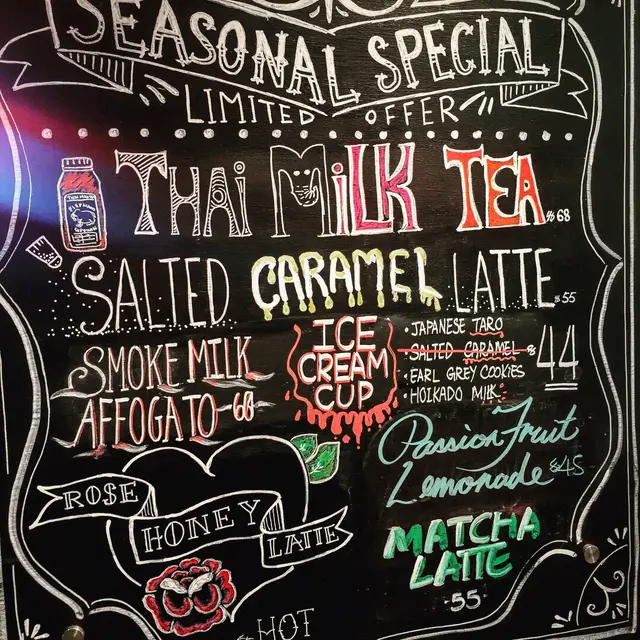 SEASONAL SPECIAL
LIMITED OFFER
THAI MILK TEA $68
SALTED CARAMEL LATTE $55
SMOKE MILK
AFFOGATO 68
ICE
CREAM
CUP
• JAPANESE TARO
• SALTED CARAMEL
• EARL GREY COOKIES
• HOIKADO MILK
$44
Passion Fruit
Lemonade $45
RO$E
HONEY
LATTE
MATCHA
LATTE
55
HOT